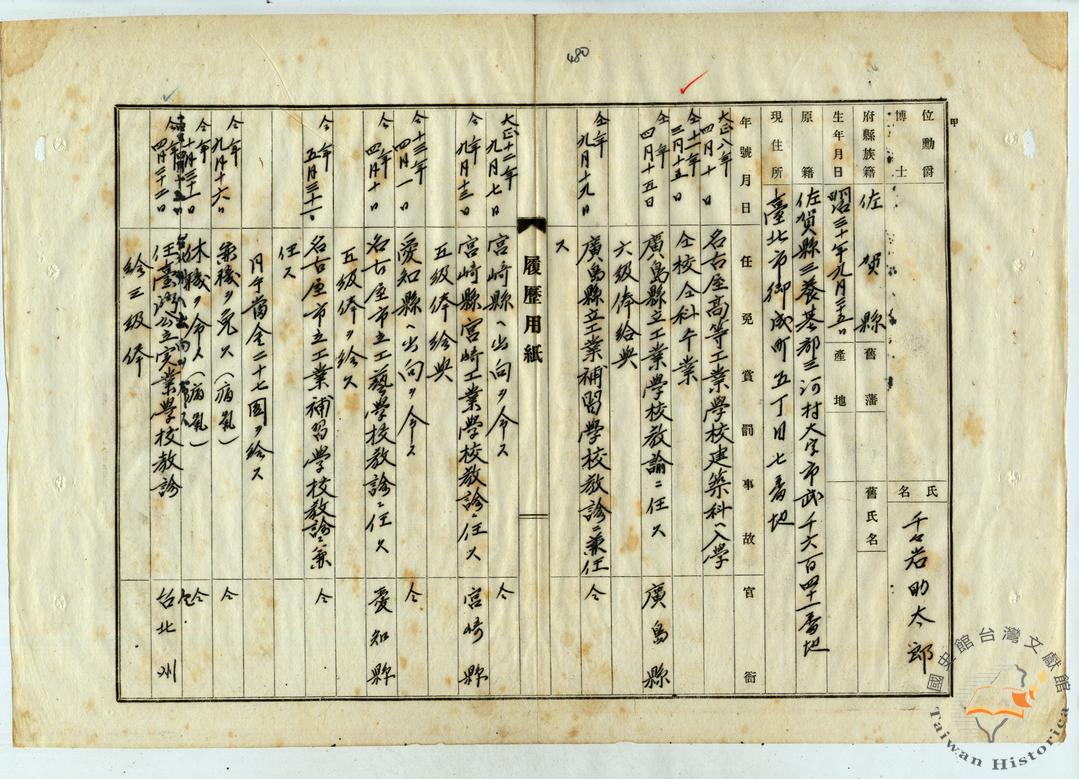 480
甲
位勳爵
博士
氏名
千々岩助太郎
府縣族籍
佐賀縣
舊藩
舊氏名
生年月日
明治三十年九月三五日
產地
原籍
佐賀縣三養基郡三河村大字市武千六百四十一番地
現住所
臺北市御成町五丁目七番地
年號月日
任免賞罰事故
官衙
大正八年四月十日
名古屋高等工業學校建築科ヘ入學
仝十一年三月十五日
仝校仝科卒業
仝年四月十五日
廣島縣立工業學校教諭ニ任ス
廣島縣
六級俸給與
仝年九月十九日
廣島縣立工業補習學校教諭ニ兼任
ス
仝
履歷用紙
大正十二年九月七日
宮崎縣ヘ出向ヲ命ス
仝
仝年九月十三日
宮崎縣宮崎工業學校教諭ニ任ス
宮崎縣
五級俸給與
仝十三年四月一日
愛知縣ヘ出向ヲ命ス
仝
仝年四月十日
名古屋市立工藝學校教諭ニ任ス
愛知縣
五級俸ヲ給ス
仝年五月三十一日
名古屋市立工業補習學校教諭ニ兼
任ス
仝
月手當金二十七圓ヲ給ス
仝年九月十六日
兼職ヲ免ス（病氣）
仝
仝年十月三十一日
休職ヲ命ス（病氣）
仝
四月二十二日
任臺灣公立實業學校教諭
台北州
給三級俸
國史館台灣文獻館
Taiwan Historica